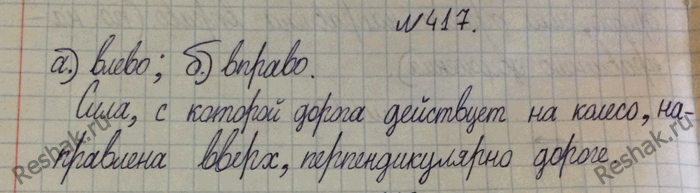 №417.
а.) влево; б.) вправо.
Сила, с которой дорога действует на колесо, на-
правлена вверх, перпендикулярно дороге.
Reshak.ru
Reshak.ru